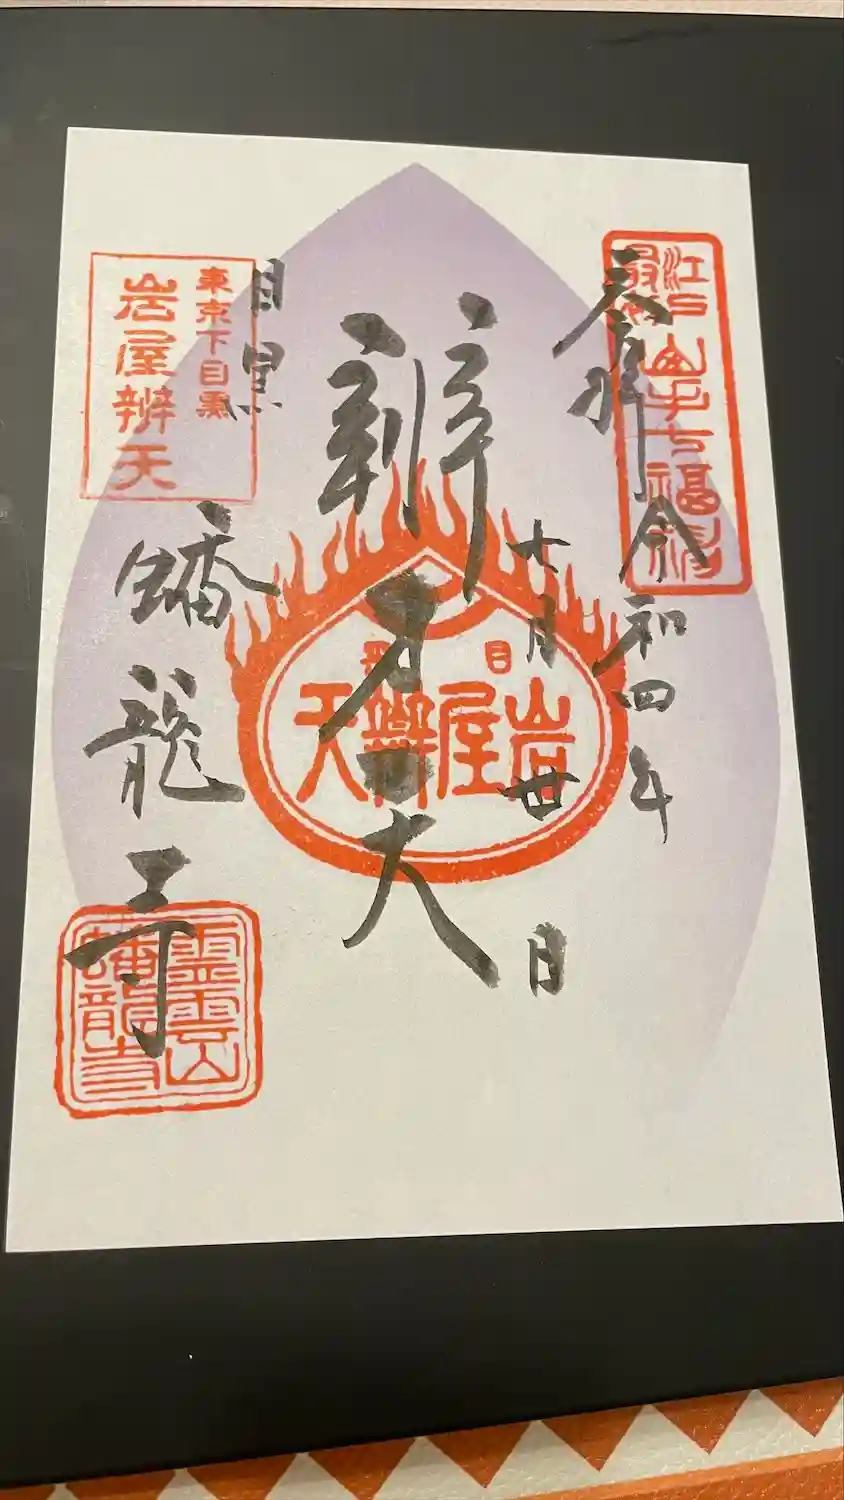 奉拝
令和四年
十月廿日
辨才天
目黒
蟠龍寺
江戸最初
山手七福神
目黒
岩屋辨天
東京下目黒
岩屋辨天
霊雲山
蟠龍寺